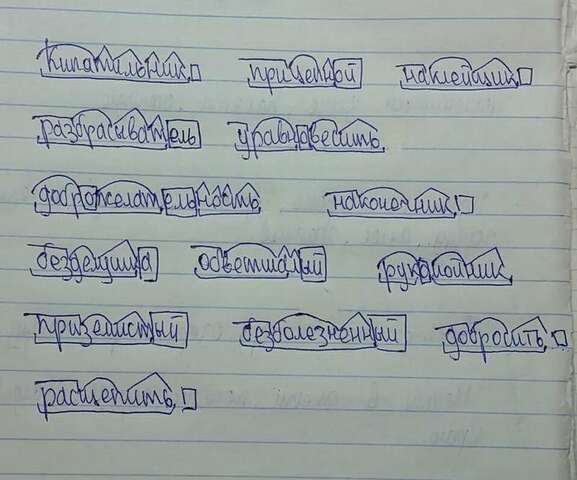 кипятильник прицепной наклейщик
разбрасыватель уравновесить
доброжелательность наконечник
бездельница обветшалый рукомойник
приземистый безболезненный добросить
расщепить